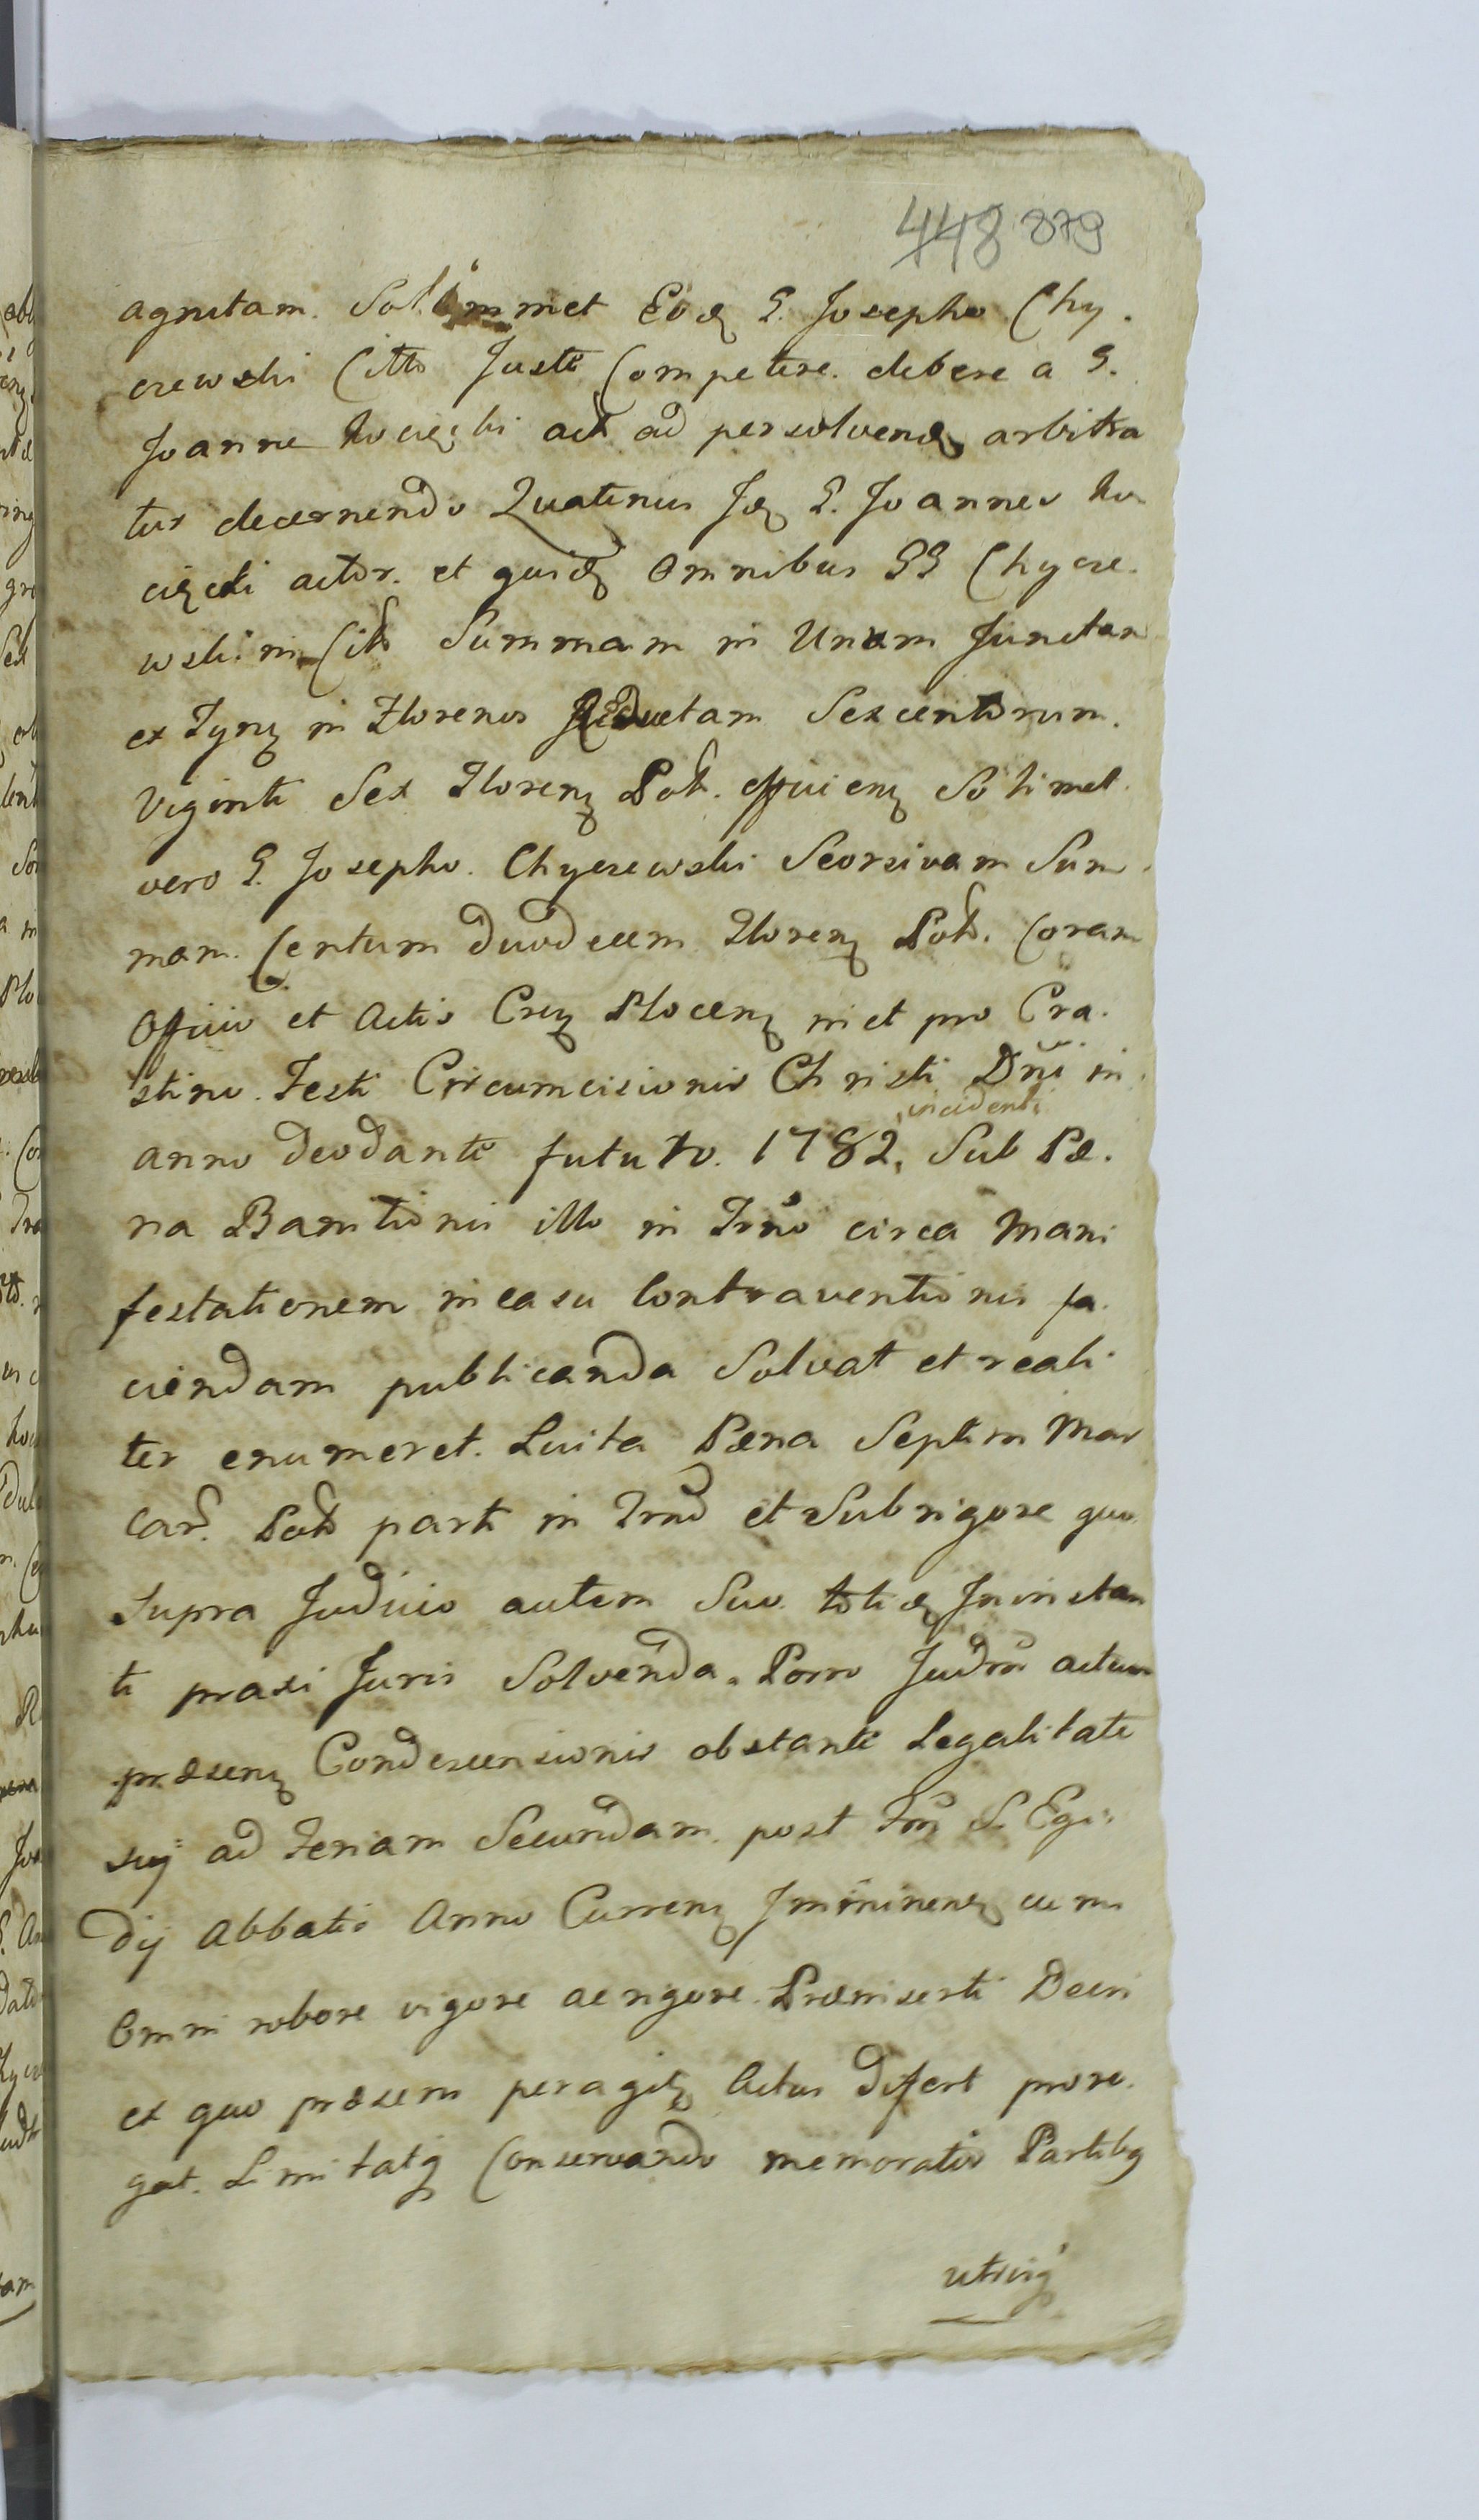 448 879
agnitam. Solimmet Eidem G. Josepho Chy.
czewski Citto Juste Competere. debere a G.
Joanne Kocięcki act ad persolvend arbitra
tur decernendo Quatenus Id G. Joannes Ko
cięcki actor. et quid Omnibus GG Chycze.
wskim Citt Summam in Unam Junctam
ex Tynf in Florenos Reductam Sexcentorum.
Viginti Sex Floren Pol. efficien Solimet
vero G. Josepho. Chyczewski Seorsivam Sum
mam. Centum duodecem Floren Pol. Coram
Officio et Actis Cas Plocen in et pro Cra.
stino. Festi Circumcisionis Christi Dni in
incidenti
anno deodante futuro. 1782, Sub Pæ.
na Bannitionis illo in Trno circa Mani
festationem in casu Contraventionis fa.
ciendam publicanda Solvat et reali
ter enumeret. Luita Pæna Septem Mar
car. Pol parti in Trno et Sub rigore quo
supra Judicio autem Suo totid Ininstan
ti praxi Juris Solvenda. Porro Judm actum
præsen Condescensionis obstante Legalitate
suj ad Feriam Secundam post Fm S. Egi.
dij Abbatis Anno Curren Imminen cum
Omni robore vigore ac rigore Præinserti Decri
ex quo præsens peragit Actus differt proro.
gat. Limitatq Conservando memoratis Partibq
utriusq